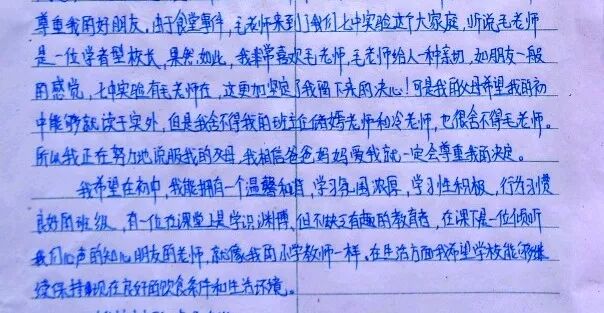 尊重我的好朋友。由于食堂事件,毛老师来到了我们七中实验这个大家庭,听说毛老师
是一位学者型校长,果然如此,我非常喜欢毛老师,毛老师给人一种亲切,如朋友一般
的感觉,七中实验有毛老师在,这更加坚定了我留下来的决心!可是我的父母希望我的初
中能够就读于实外,但是我舍不得我的班主任老师和冷老师,也很舍不得毛老师。
所以我正在努力地说服我的父母,我相信爸爸妈妈爱我就一定会尊重我的决定。
我希望在初中,我能拥有一个温馨和谐,学习氛围浓厚,学习性积极,行为习惯
良好的班级,有一位在课堂上是学识渊博,但不缺乏有趣的教育者,在课下是一位倾听
我们心声的知心朋友的老师,就像我的小学教师一样。在生活方面我希望学校能够继
续保持现在良好的饮食条件和生活环境。